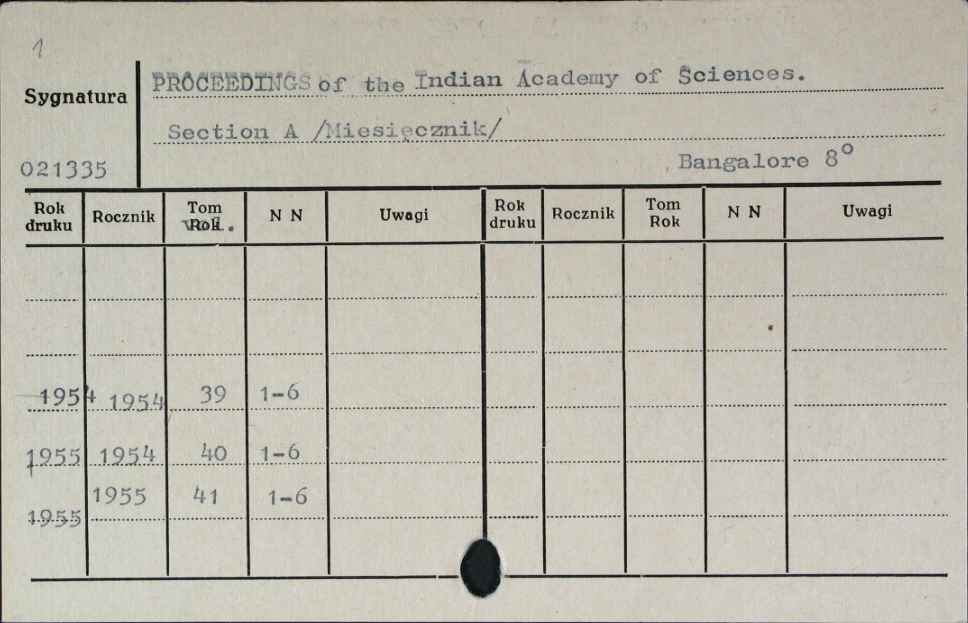 1
Sygnatura PROCEEDINGS of the Indian Academy of Sciences.
Section A /Miesięcznik/
021335 Bangalore 8°
Rok druku Rocznik Tom Rok. vol. N N Uwagi Rok druku Rocznik Tom Rok N N Uwagi
1954 1954 39 1-6
1955 1954 40 1-6
1955 1955 41 1-6